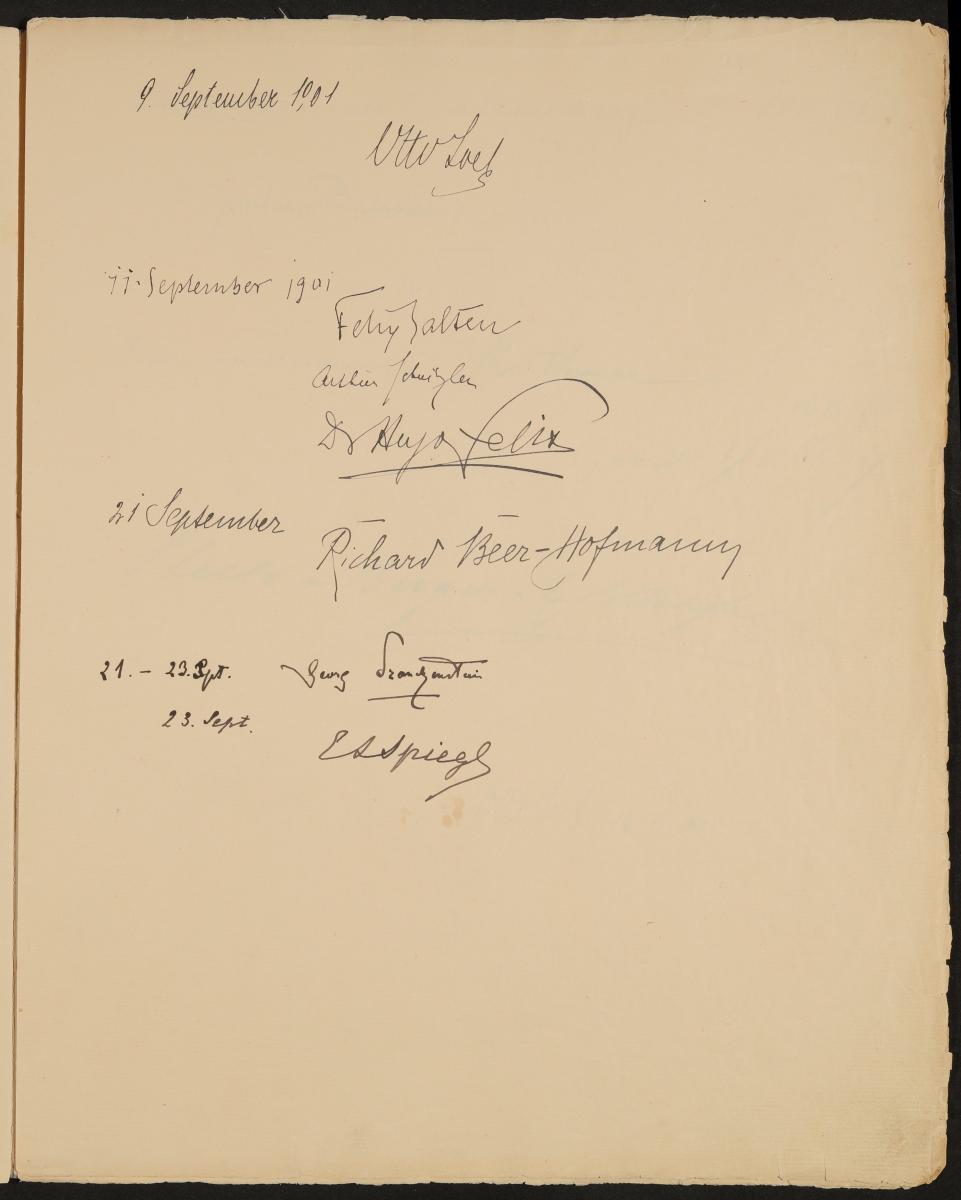 9. September 1901
Otto
11. September 1901
Felix Salten
Arthur Schnitzler
Dr Hugo Felix
21 September
Richard Beer-Hofmann
21. – 23. Spt. Georg Franckenstein
23. Sept.
E Spiegl